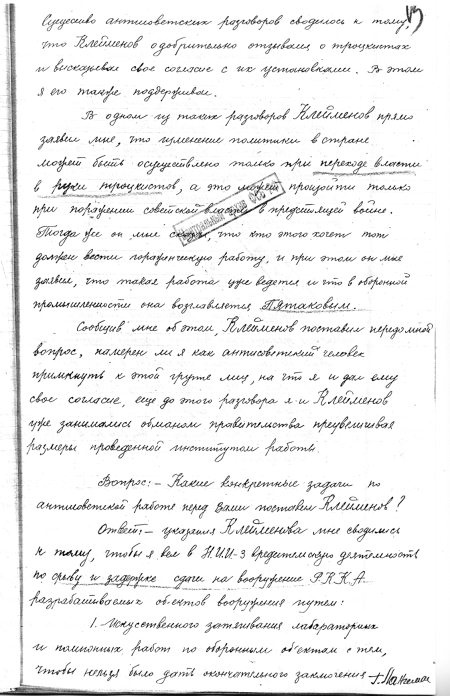 13
Существо антисоветских разговоров сводилось к тому,
что Клейменов одобрительно отзывался о троцкистах
и высказывал свое согласие с их установками. В этом
я его также поддерживал.
В одном из таких разговоров Клейменов прямо
заявил мне, что изменение политики в стране
может быть осуществлено только при переходе власти
в руки троцкистов, а это может произойти только
при поражении советской власти в предстоящей войне.
Тогда же он мне сказал, что кто этого хочет тот
должен вести пораженческую работу, и при этом он мне
заявил, что такая работа уже ведется и что в оборонной
промышленности она возглавляется Пятаковым.
Сообщив мне об этом, Клейменов поставил передо мной
вопрос, намерен ли я как антисоветский человек
примкнуть к этой группе лиц, на что я и дал ему
свое согласие, еще до этого разговора я и Клейменов
уже занимались обманом правительства преувеличивая
размеры проведенной институтом работы.
Вопрос: – Какие конкретные задачи по
антисоветской работе перед Вами поставил Клейменов?
Ответ: – указания Клейменова мне сводились
к тому, чтобы я вел в Н.И.И-3 вредительскую деятельность
по срыву и задержке сдачи на вооружение Р.К.К.А.
разрабатываемых объектов вооружения путем:
1. Искусственного затягивания лабораторных
и полигонных работ по оборонным объектам с тем,
чтобы нельзя было дать окончательного заключения